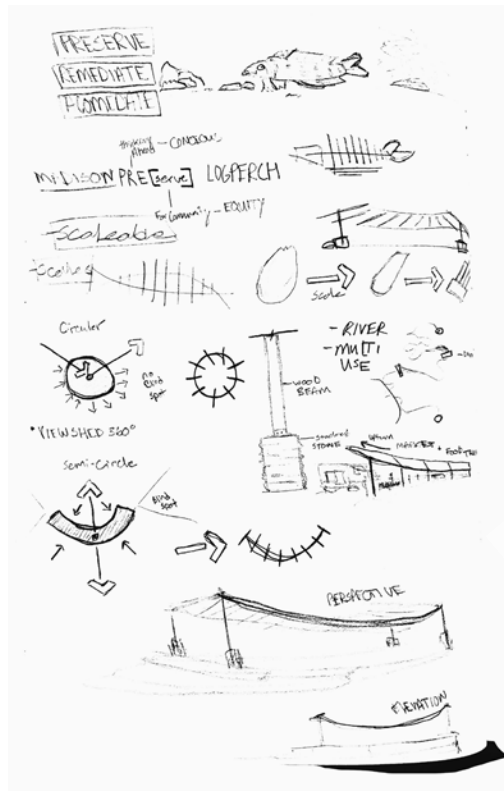 PRESERVE
REMEDIATE
thinking
Ahead - CONCIOUS
MADISON PRE[serve] LOGPERCH
For Community - EQUITY
-Scaleable
-Scales
Scale
Circular
no
blind
spot
*VIEWSHED 360°
- RIVER
- MULTI
USE
WOOD
BEAM
STONE
MARKET +
Semi-Circle
Blind
spot
PERSPECTIVE
ELEVATION